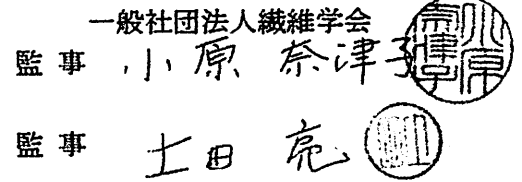 一般社団法人繊維学会
監事 小原 奈津子
監事 土田 亮